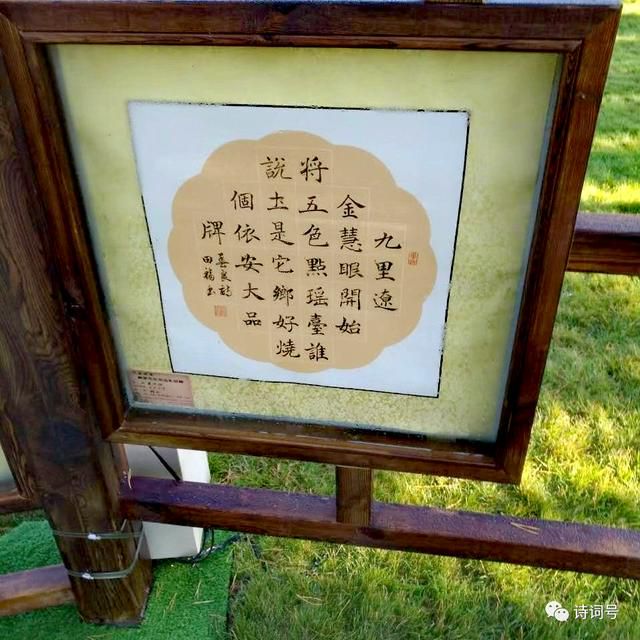 九里遼
金慧眼開始
將五色點瑶臺誰
說圡是它鄉好燒
個依安大品
牌
田福書
诗词号